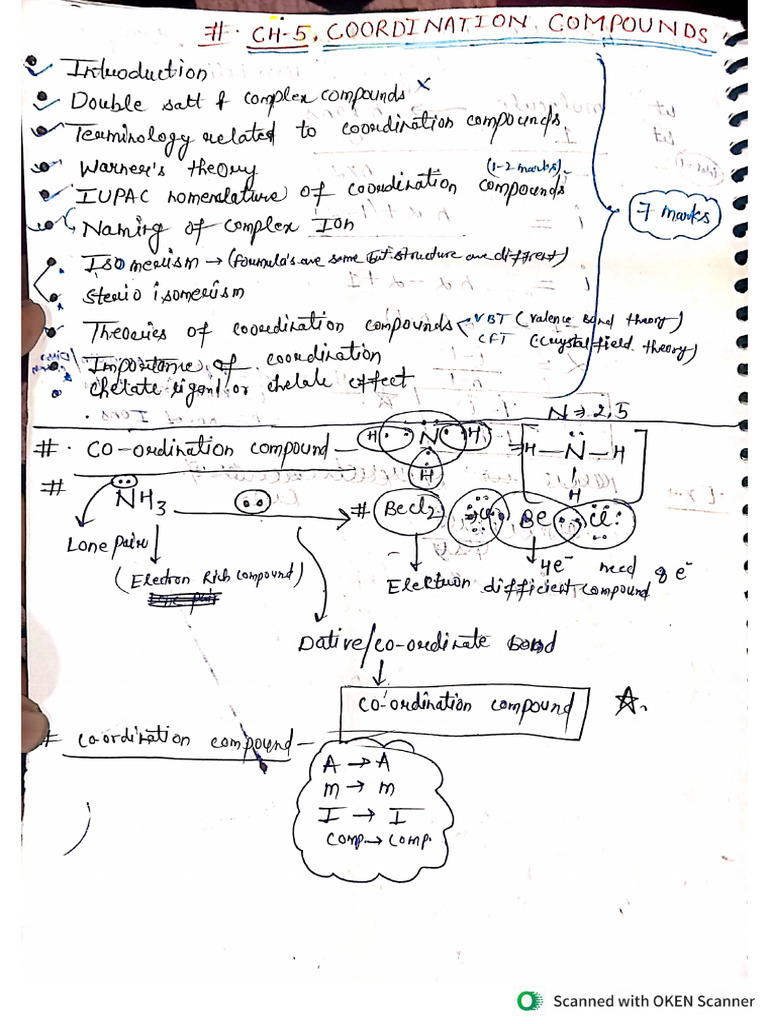 #. CH-5, COORDINATION COMPOUNDS
Introduction
Double salt & complex compounds x
Terminology related to coordination compounds
Warner's theory
(1-2 marks)
IUPAC nomenclature of coordination compounds
Naming of complex Ion
7 marks
Isomerism → (formula's are same but structure are different)
Sterio isomerism
Theories of coordination compounds VBT (valence Bond theory)
CFT (Crystal field theory)
Importance of coordination
chelate ligand or chelate effect
N → 2,5
#. CO-ordination compound
H N H
H
H—N—H
H
# NH3
# BeCl2 Cl Be Cl
Lone pair
(Electron Rich compound)
4e⁻ need 8e⁻
Elektron difficient compound
Dative/co-ordinate bond
CO-ordination compound
# co-ordination compound
A → A
m → m
I → I
Comp → comp.
Scanned with OKEN Scanner